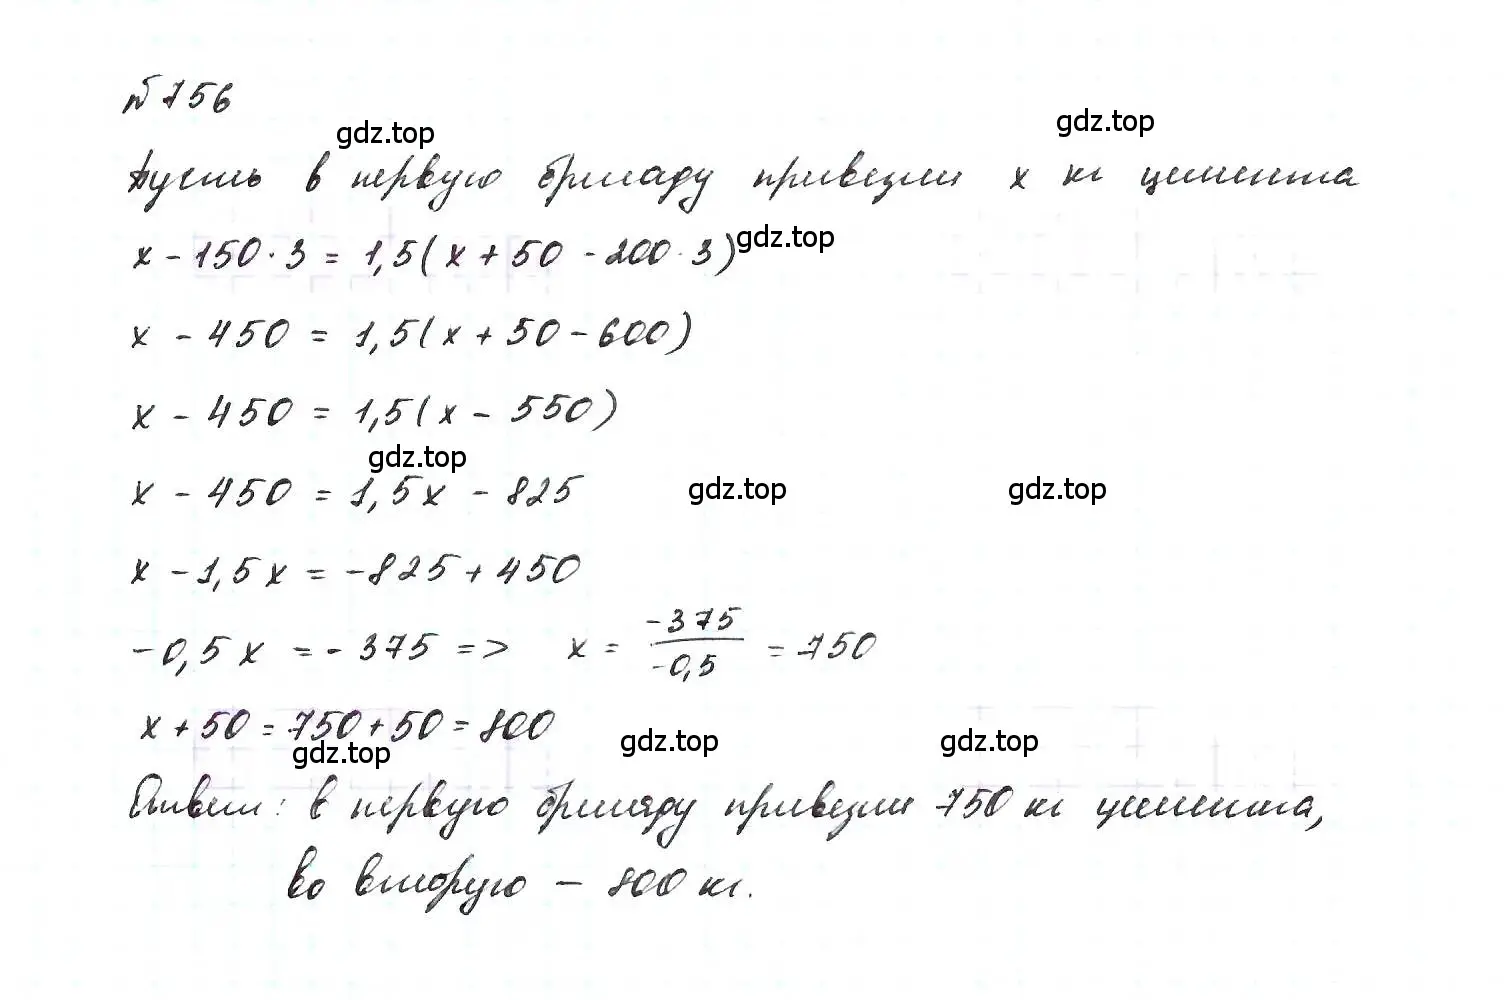 № 756
gdz.top
gdz.top
Пусть в первую бригаду привезли x кг цемента
x - 150 · 3 = 1,5(x + 50 - 200 · 3)
gdz.top
x - 450 = 1,5(x + 50 - 600)
x - 450 = 1,5(x - 550)
gdz.top
x - 450 = 1,5x - 825
gdz.top
gdz.top
x - 1,5x = -825 + 450
-0,5x = -375 => x = -375/-0,5 = 750
x + 50 = 750 + 50 = 800
gdz.top
gdz.top
gdz.top
Ответ: в первую бригаду привезли 750 кг цемента,
во вторую - 800 кг.